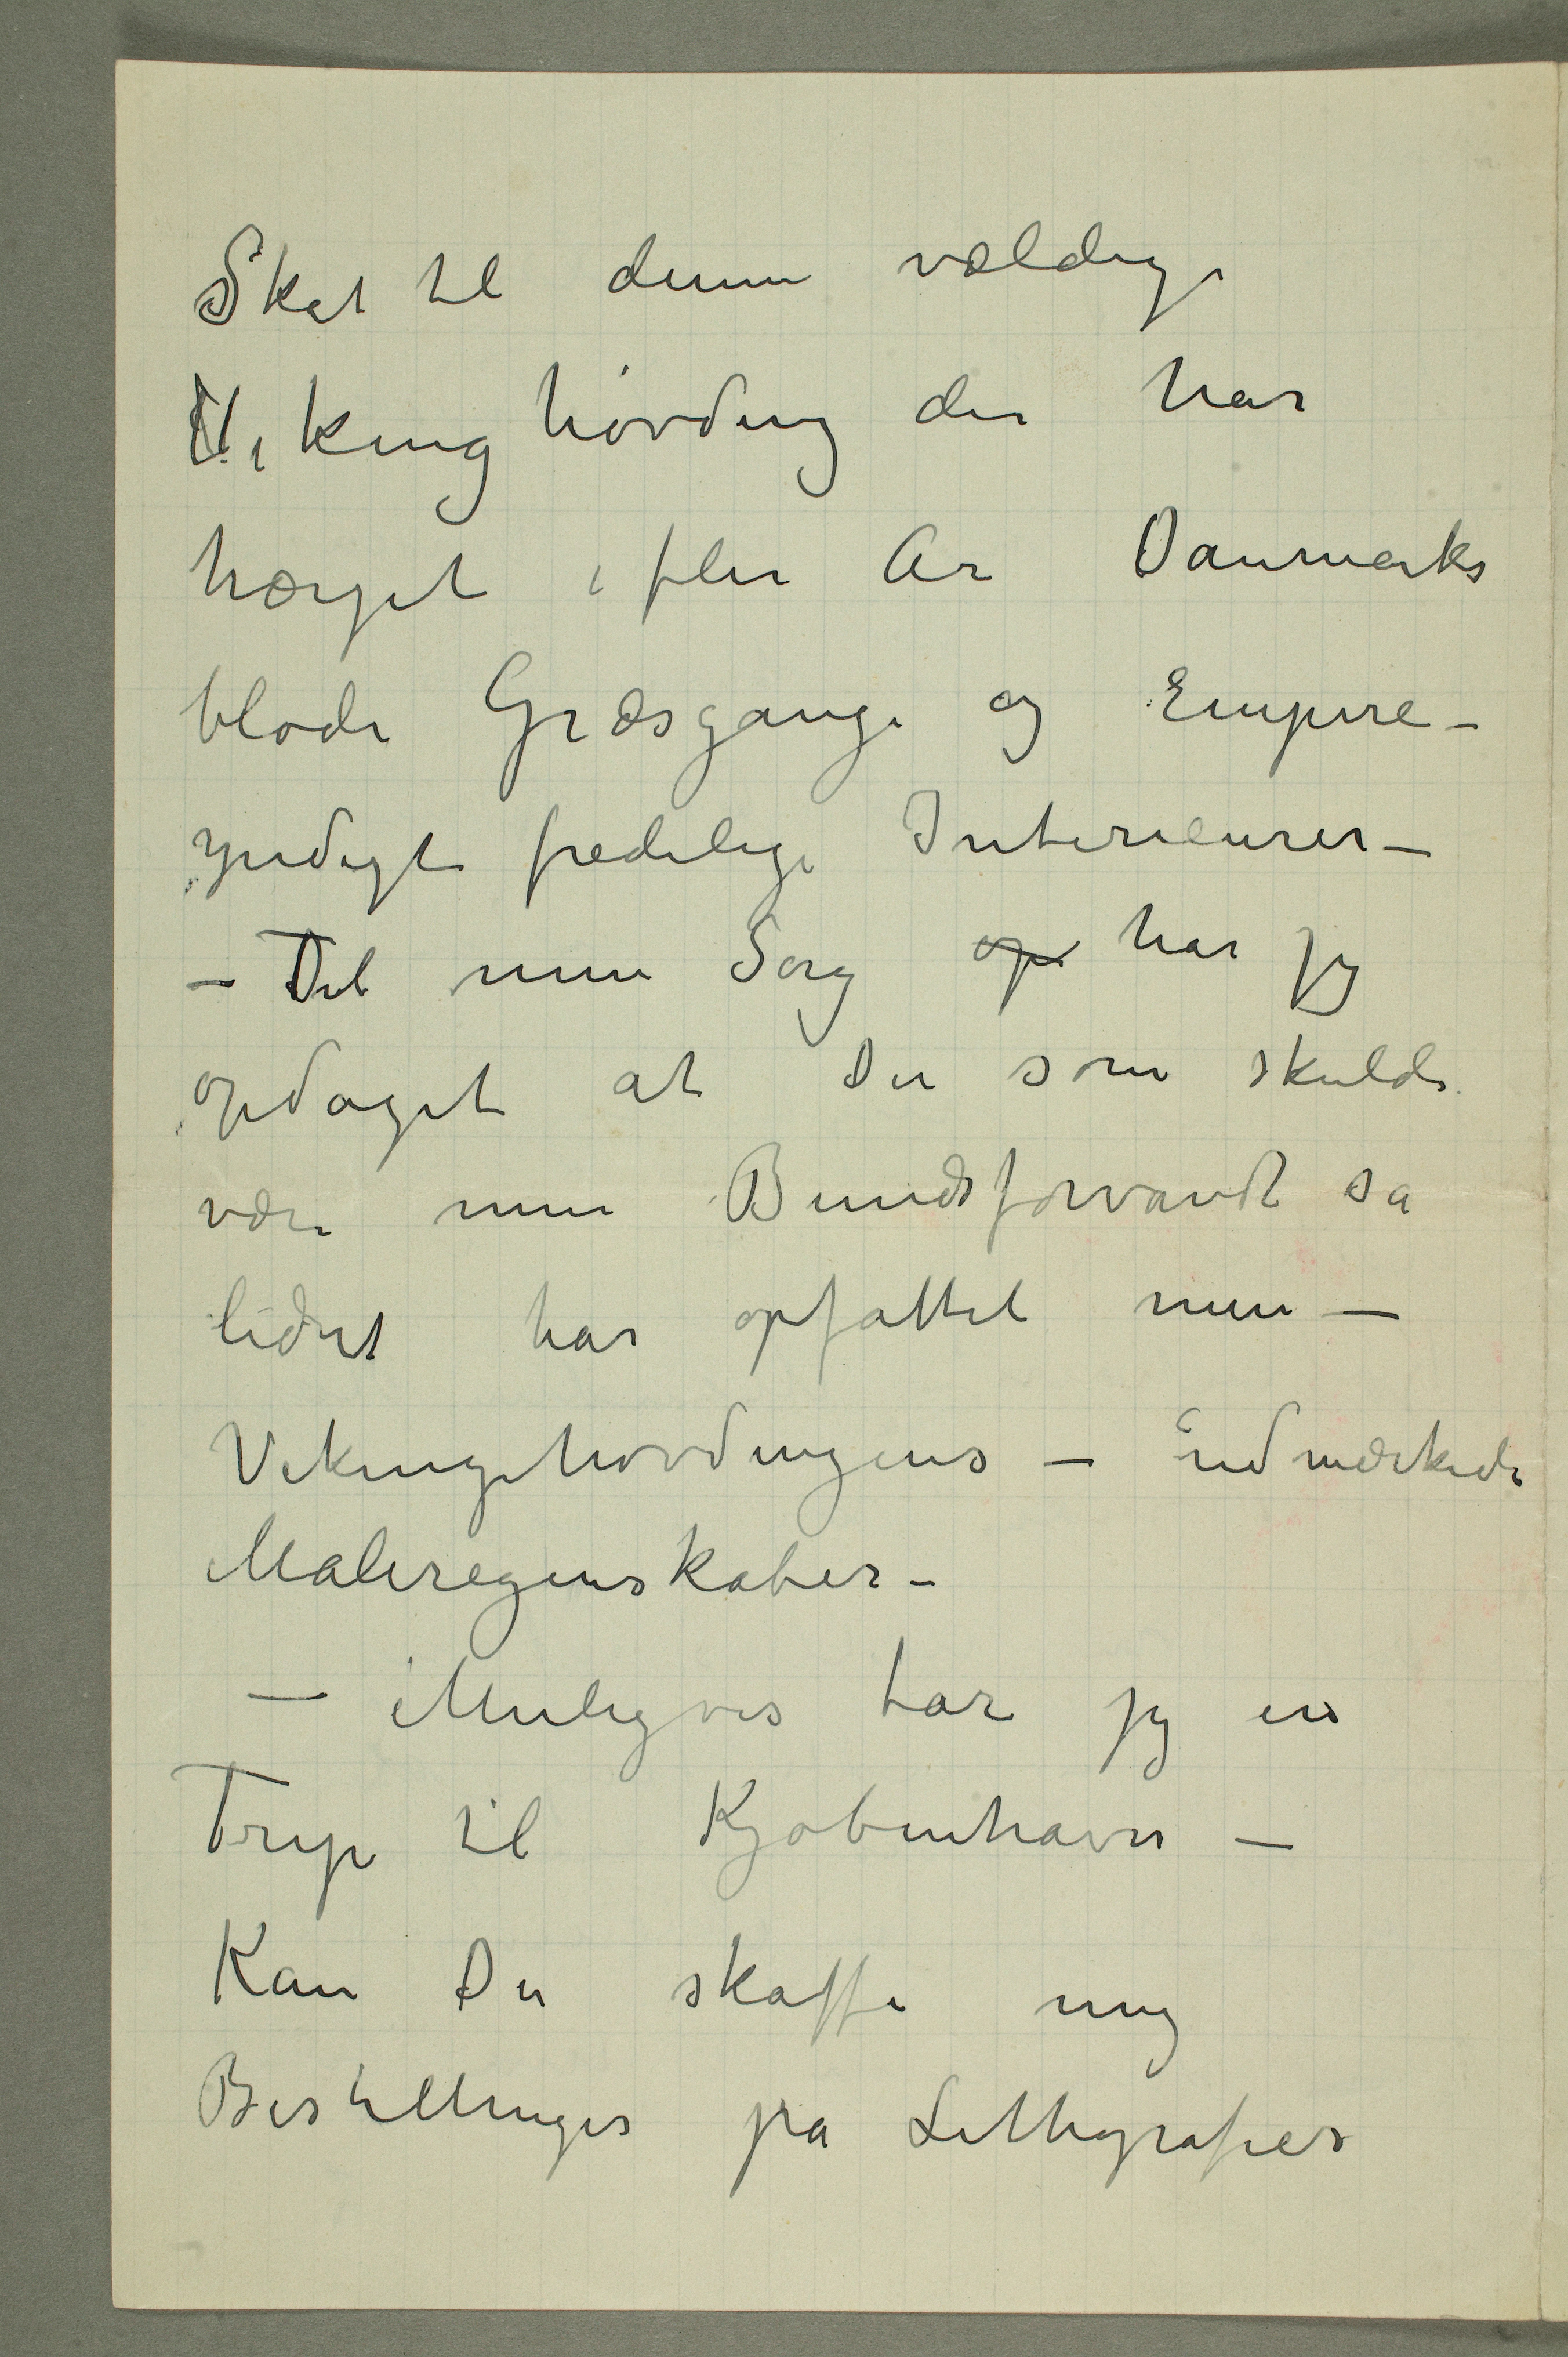 Skat til denne vældige
Vikinghövding der har
hærget i flere Ar Danmarks
bløde Græsgange og Empire –
yndigt fredelige Interieurer –
– Til min Sorg op har jeg
opdaget at Du som skulde
være min Bundsforvandt sa
lidet har opfattet min –
Vikingehøvdingens – udmærkede
Maleregenskaber –
– Muligvis tar jeg en
Trip til Kjøbenhavn –
Kan Du skaffe mig
Bestillinger på Lithografier